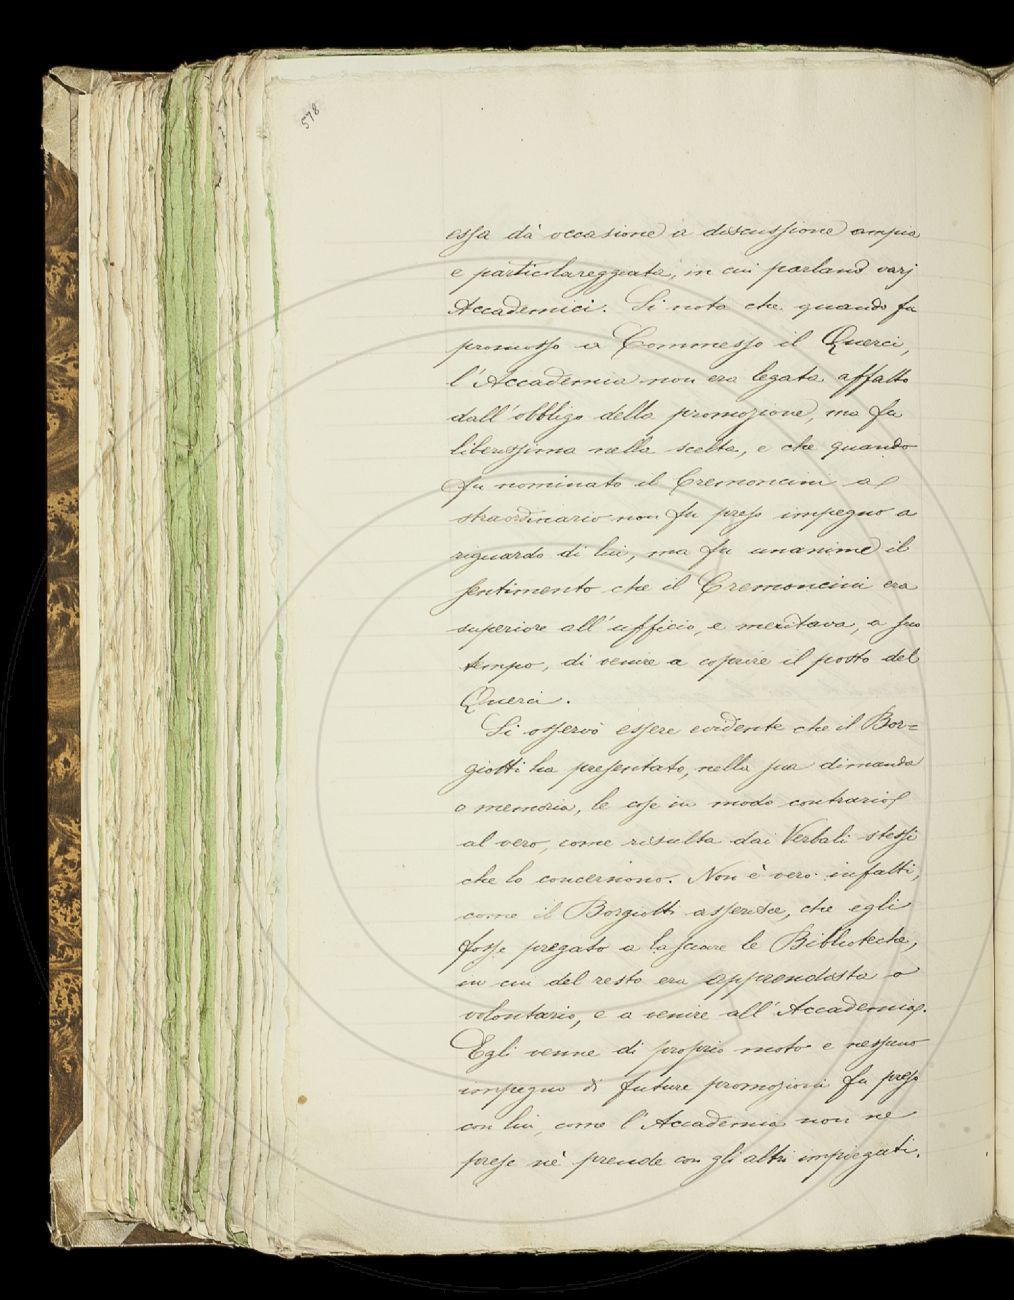 578
essa dà occasione a discussione ampia
e particolareggiata, in cui parlano varj
Accademici. Si nota che quando fu
promosso a Commesso il Querci,
l'Accademia non era legata affatto
dall'obbligo della promozione, ma fu
liberissima nella scelta, e che quando
fu nominato il Cremoncini a
straordinario non fu preso impegno a
riguardo di lui, ma fu unanime il
sentimento che il Cremoncini era
superiore all'ufficio, e meritava, a suo
tempo, di venire a coprire il posto del
Querci.
Si osservò essere evidente che il Bor=
giotti ha presentato, nella sua dimanda
o memoria, le cose in modo contrario
al vero, come risulta dai Verbali stessi
che lo concernono. Non è vero infatti,
come il Borgiotti asserisce, che egli
fosse pregato a lasciare le Biblioteche,
in cui del resto era apprendista o
volontario, e a venire all'Accademia.
Egli venne di proprio moto e nessuno
impegno di future promozioni fu preso
con lui, come l'Accademia non ne
prese nè prende con gli altri impiegati.